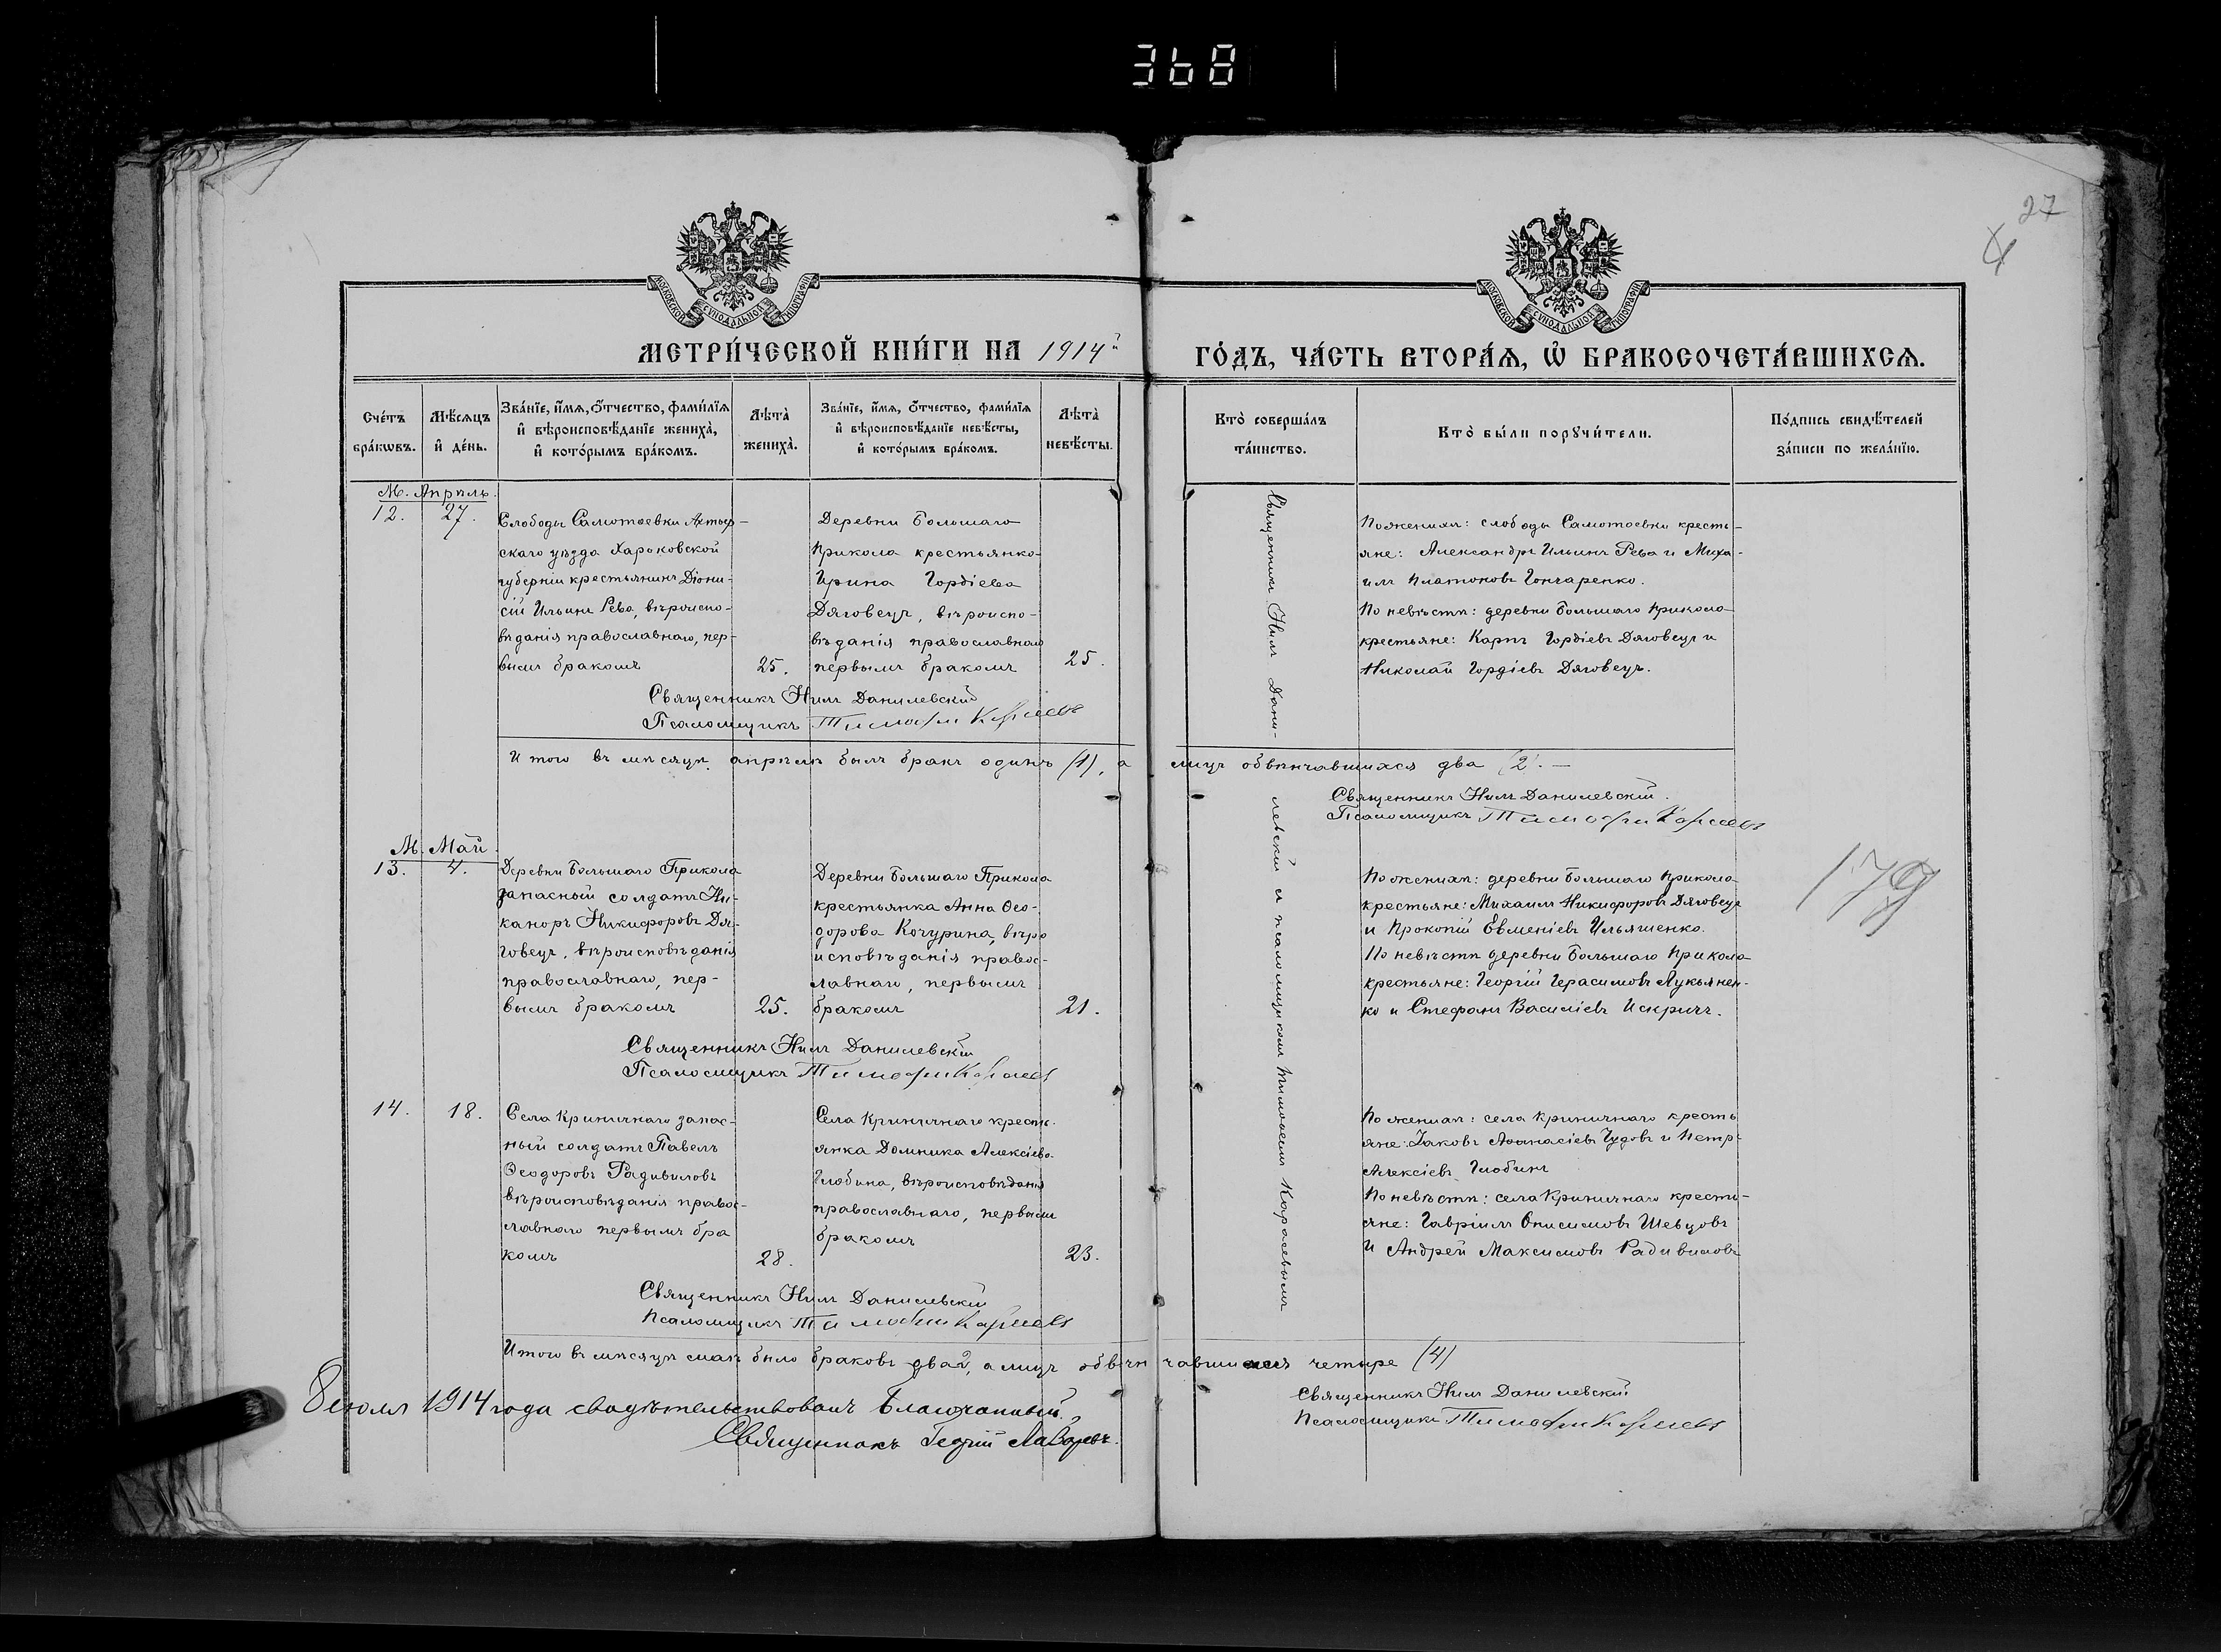 368
27
4
МОСКОВСКОЙ СѴНОДАЛЬНОЙ ТИПОГРАФІИ
МОСКОВСКОЙ СѴНОДАЛЬНОЙ ТИПОГРАФІИ
МЕТРИ́ЧЕСКОЙ КНИ́ГИ НА 1914й
ГО́ДЪ, ЧА́СТЬ ВТОРА́Я, Ѡ҆ БРАКОСОЧЕТА́ВШИХСѦ.
Сче́тъ бра́кѡвъ.
Мѣ́сяцъ и҆ де́нь.
Зва́нїе, и҆́мѧ, ѻ҆́тчество, фамѝлїѧ и҆ вѣроисповѣ́данїе женихà, и҆ кото́рымъ бра́комъ.
Лѣ́та женихà.
Зва́нїе, и҆́мѧ, ѻ҆́тчество, фамѝлїѧ и҆ вѣроисповѣ́данїе невѣ́сты, и҆ кото́рымъ бра́комъ.
Лѣ́та невѣ́сты.
Кто̀ соверша́лъ та́инство.
Кто̀ бы́ли порꙋчи́тели.
По́дпись свидѣ́телей за́писи по жела́нїю.
М. Апрѣль.
12.
27.
Слободы Самотоевки Ахтыр-
скаго уѣзда Харьковской
губерніи крестьянинъ Діони-
сій Ильинъ Рева, вѣроиспо-
вѣданія православнаго, пер-
вымъ бракомъ
25.
Деревни Большаго
Прикола крестьянка
Ирина Гордіева
Дяговецъ, вѣроиспо-
вѣданія православнаго
первымъ бракомъ
25.
Священникъ Нилъ Дани-
левскій и псаломщикомъ Тимофеемъ Карасевымъ
По женихѣ: слободы Самотоевки кресть-
яне: Александръ Ильинъ Рева и Миха-
илъ Платоновъ Гончаренко.
По невѣстѣ: деревни Большаго Прикола
крестьяне: Карпъ Гордіевъ Дяговецъ и
Николай Гордіевъ Дяговецъ.
Священникъ Нилъ Данилевскій
Псаломщикъ Тимофей Карасевъ
Итого въ мѣсяцѣ апрѣлѣ былъ бракъ одинъ (1), а лицъ обвѣнчавшихся два (2). —
Священникъ Нилъ Данилевскій.
Псаломщикъ Тимофей Карасевъ
М. Май
13.
4.
Деревни Большаго Прикола
запасный солдатъ Ни-
каноръ Никифоровъ Дя-
говецъ, вѣроисповѣданія
православнаго, пер-
вымъ бракомъ
25.
Деревни Большаго Прикола
крестьянка Анна Ѳео-
дорова Кочурина, вѣро
исповѣданія правос-
лавнаго, первымъ
бракомъ
21.
По женихѣ: деревни Большаго Прикола
крестьяне: Михаилъ Никифоровъ Дяговецъ
и Прокопій Евменіевъ Ильяшенко.
По невѣстѣ деревни Большаго Прикола
крестьяне: Георгій Герасимовъ Лукьянен-
ко и Стефанъ Василіевъ Искричъ.
179
Священникъ Нилъ Данилевскій
Псаломщикъ Тимофей Карасевъ
14.
18.
Села Криничнаго запас-
ный солдатъ Павелъ
Ѳеодоровъ Радивиловъ
вѣроисповѣданія правос-
лавнаго первымъ бра
комъ
28.
Села Криничнаго кресть-
янка Домника Алексіева
Глобина, вѣроисповѣданія
православнаго, первымъ
бракомъ
23.
По женихѣ: села Криничнаго кресть
яне: Іаковъ Аѳанасіевъ Чудовъ и Петръ
Алексіевъ Глобинъ
По невѣстѣ: села Криничнаго кресть-
яне: Гавріилъ Онисимовъ Шевцовъ
и Андрей Максимовъ Радивиловъ
Священникъ Нилъ Данилевскій
Псаломщикъ Тимофей Карасевъ
Итого въ мѣсяцѣ маѣ было браковъ два 2, а лицъ обвѣнчавшихся четыре (4)
Священникъ Нилъ Данилевскій
Псаломщикъ Тимофей Карасевъ
8 іюля 1914 года свидѣтельствовалъ Благочинный
Священникъ Георгій